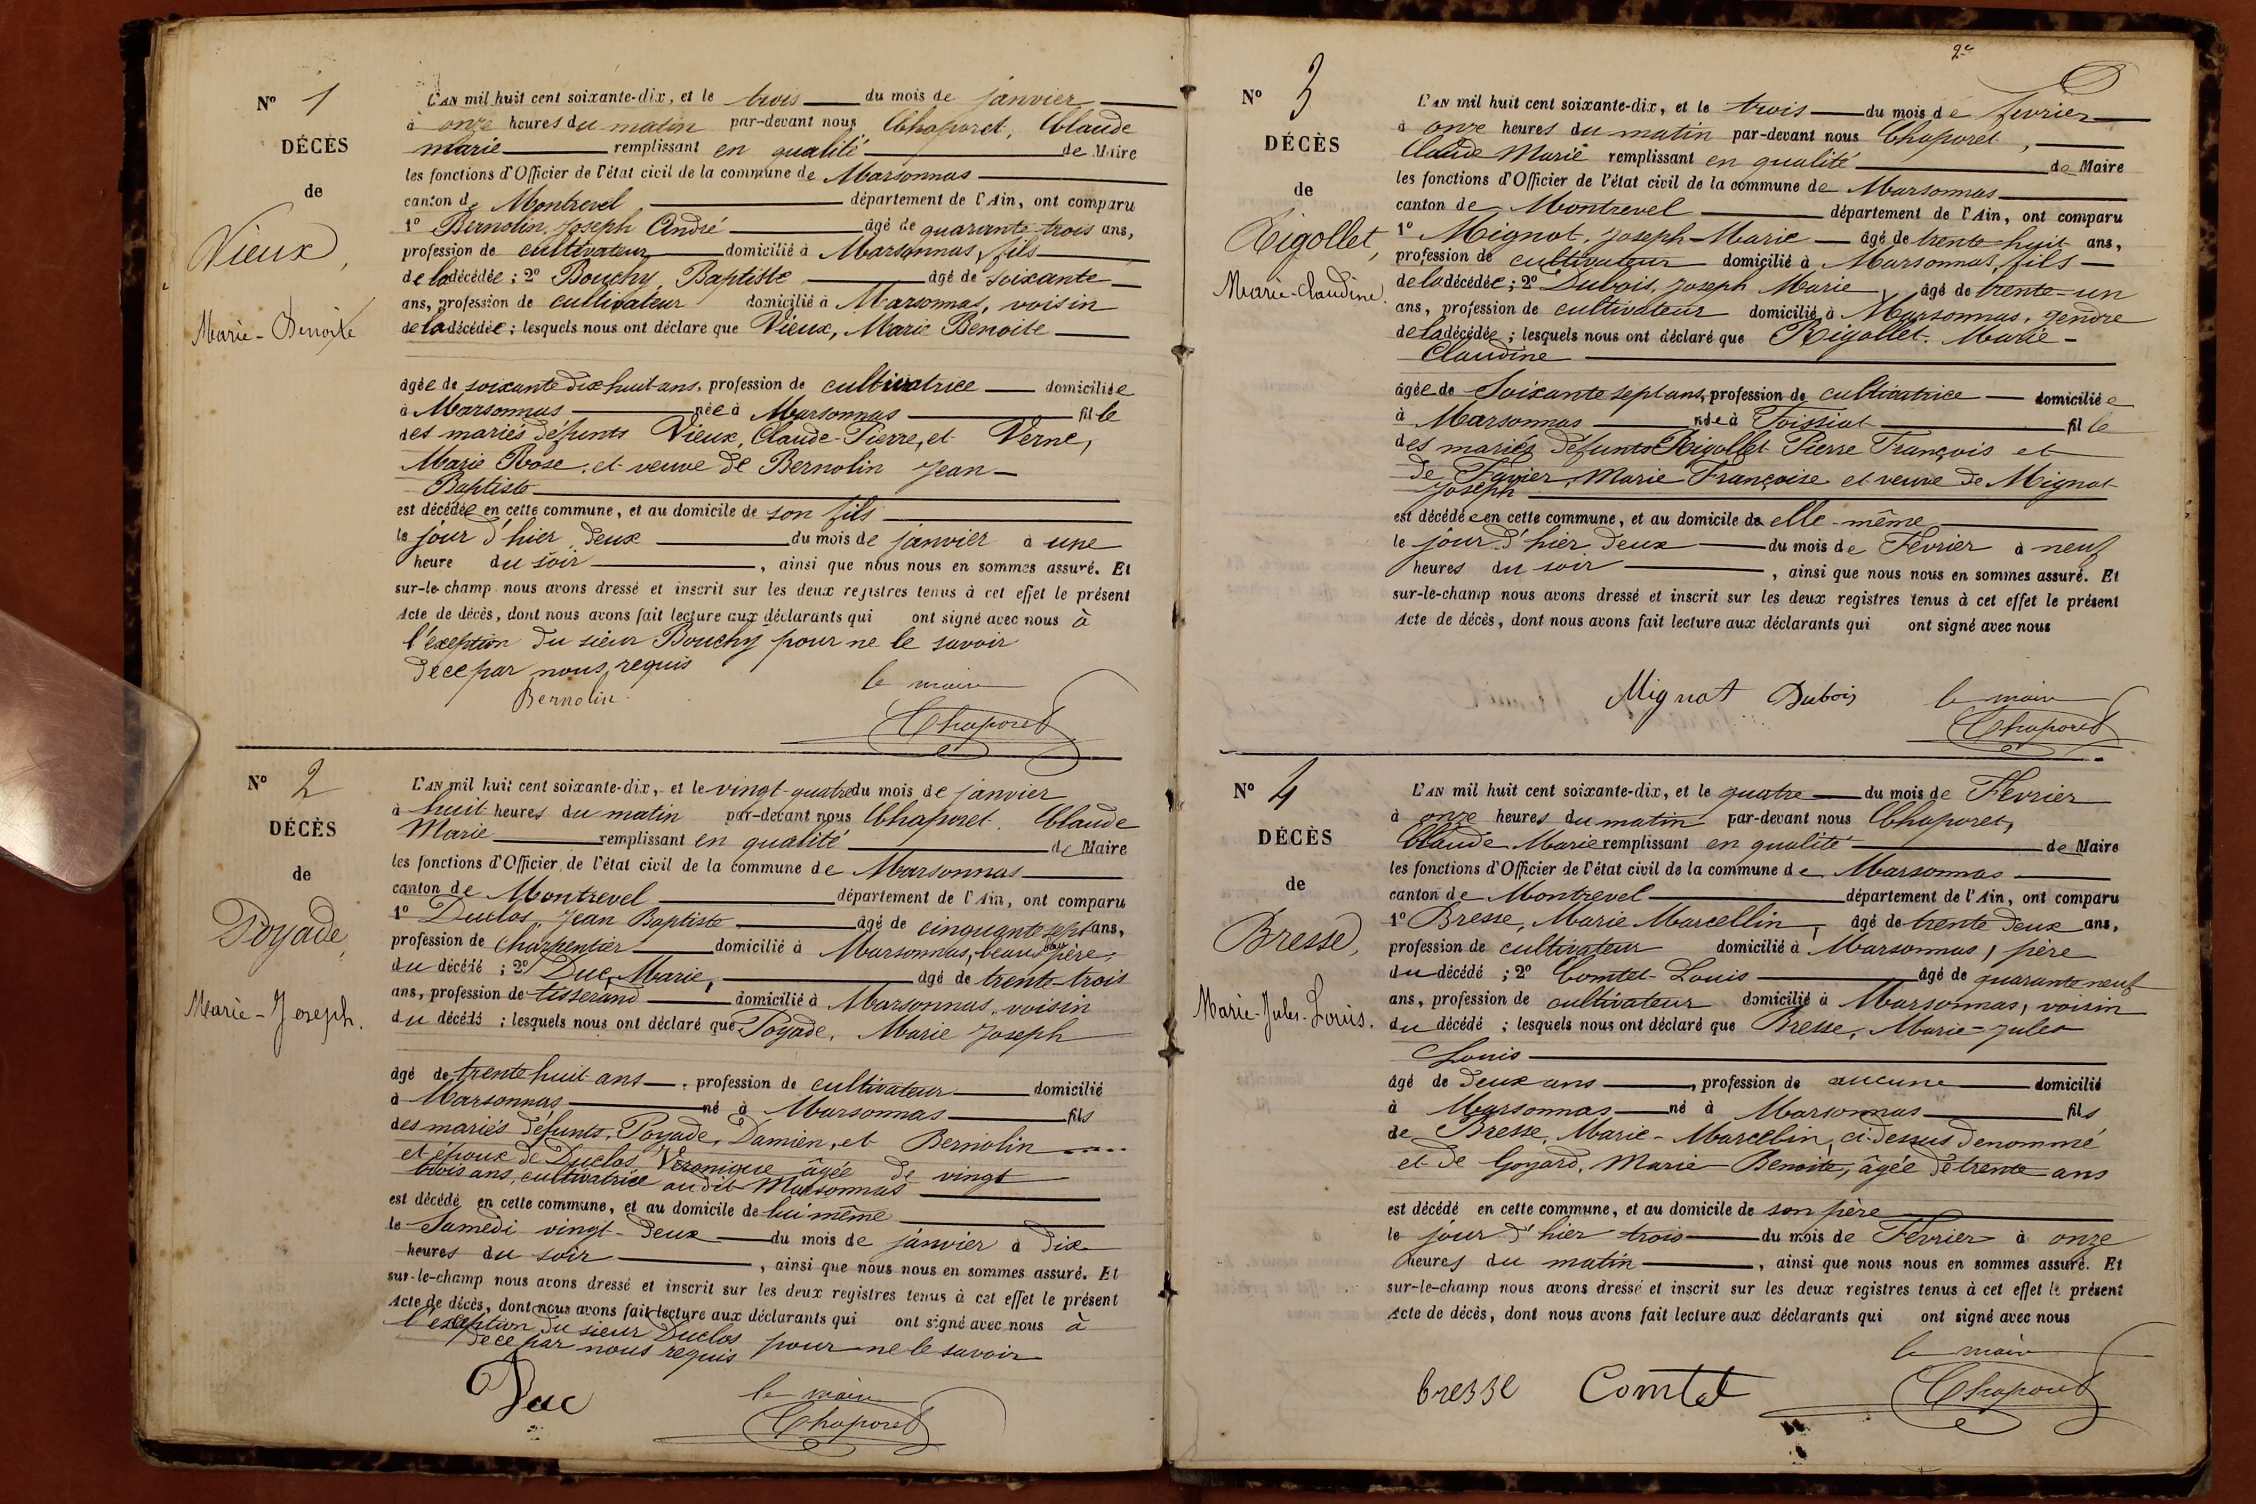 N° 1
DÉCÈS
de
Vieux,
Marie-Benoite
L'AN mil huit cent soixante-dix, et le trois du mois de janvier
à onze heures du matin par-devant nous Chaporet, Claude
marie remplissant en qualité de Maire
les fonctions d'Officier de l'état civil de la commune de Marsonnas
canton de Montrevel département de l'Ain, ont comparu
1° Bernolin, Joseph André âgé de quarante-trois ans,
profession de cultivateur domicilié à Marsonnas, fils
de la décédée ; 2° Bouchy, Baptiste âgé de soixante
ans, profession de cultivateur domicilié à Marsonnas, voisin
de la décédée ; lesquels nous ont déclaré que Vieux, Marie Benoite
âgée de soixante dix huit ans, profession de cultivatrice domiciliée
à Marsonnas née à Marsonnas fille
des mariés défunts Vieux, Claude-Pierre, et Verne,
Marie Rose, et veuve de Bernolin Jean-
Baptiste
est décédée en cette commune, et au domicile de son fils
le jour d'hier, deux du mois de janvier à une
heure du soir, ainsi que nous nous en sommes assuré. Et
sur-le-champ nous avons dressé et inscrit sur les deux registres tenus à cet effet le présent
Acte de décès, dont nous avons fait lecture aux déclarants qui ont signé avec nous à
l'exeption du sieur Bouchy pour ne le savoir
de ce par nous requis
Bernolin le maire
Chaporet
N° 2
DÉCÈS
de
Poyade,
Marie-Joseph.
L'AN mil huit cent soixante-dix, et le vingt-quatre du mois de janvier
à huit heures du matin par-devant nous Chaporet, Claude
Marie remplissant en qualité de Maire
les fonctions d'Officier de l'état civil de la commune de Marsonnas
canton de Montrevel département de l'Ain, ont comparu
1° Duclos, Jean Baptiste âgé de cinquante sept ans,
profession de charpentier domicilié à Marsonnas, beau père
du décédé ; 2° Duc, Marie, âgé de trente-trois
ans, profession de tisserand domicilié à Marsonnas, voisin
du décédé ; lesquels nous ont déclaré que Poyade, Marie Joseph
âgé de trente huit ans, profession de cultivateur domicilié
à Marsonnas né à Marsonnas fils
des mariés défunts, Poyade, Damien, et Bernolin
et époux de Duclos Véronique âgée de vingt
trois ans, cultivatrice audit Marsonnas
est décédé en cette commune, et au domicile de lui même
le Samedi vingt-deux du mois de janvier à dix
heures du soir, ainsi que nous nous en sommes assuré. Et
sur-le-champ nous avons dressé et inscrit sur les deux registres tenus à cet effet le présent
Acte de décès, dont nous avons fait lecture aux déclarants qui ont signé avec nous à
l'exeption du sieur Duclos pour ne le savoir
de ce par nous requis
Duc le maire
Chaporet
2e
N° 3
DÉCÈS
de
Rigollet,
Marie-Claudine.
L'AN mil huit cent soixante-dix, et le trois du mois de fevrier
à onze heures du matin par-devant nous Chaporet,
Claude Marie remplissant en qualité de Maire
les fonctions d'Officier de l'état civil de la commune de Marsonnas
canton de Montrevel département de l'Ain, ont comparu
1° Mignot, Joseph-Marie âgé de trente-huit ans,
profession de cultivateur domicilié à Marsonnas, fils
de la décédée ; 2° Dubois, Joseph Marie, âgé de trente-un
ans, profession de cultivateur domicilié à Marsonnas, gendre
de la décédée ; lesquels nous ont déclaré que Rigollet, Marie-
Claudine
âgée de Soixante sept ans, profession de cultivatrice domiciliée
à Marsonnas née à Foissiat fille
des mariés défunts Rigollet Pierre François et
de Favier, Marie Françoise et veuve de Mignot
Joseph
est décédée en cette commune, et au domicile de elle-même
le jour d'hier deux du mois de Fevrier à neuf
heures du soir, ainsi que nous nous en sommes assuré. Et
sur-le-champ nous avons dressé et inscrit sur les deux registres tenus à cet effet le présent
Acte de décès, dont nous avons fait lecture aux déclarants qui ont signé avec nous
Mignot Dubois le maire
Chaporet
N° 4
DÉCÈS
de
Bresse,
Marie-Jules-Louis.
L'AN mil huit cent soixante-dix, et le quatre du mois de Fevrier
à onze heures du matin par-devant nous Chaporet,
Claude Marie remplissant en qualité de Maire
les fonctions d'Officier de l'état civil de la commune de Marsonnas
canton de Montrevel département de l'Ain, ont comparu
1° Bresse, Marie Marcellin, âgé de trente deux ans,
profession de cultivateur domicilié à Marsonnas, père
du décédé ; 2° Comtet Louis âgé de quarante neuf
ans, profession de cultivateur domicilié à Marsonnas, voisin
du décédé ; lesquels nous ont déclaré que Bresse, Marie-Jules
Louis
âgé de deux ans, profession de aucune domicilié
à Marsonnas né à Marsonnas fils
de Bresse, Marie-Marcellin, ci-dessus denommé
et de Goyard, Marie Benoite, âgée de trente ans
est décédé en cette commune, et au domicile de son père
le jour d'hier trois du mois de Fevrier à onze
heures du matin, ainsi que nous nous en sommes assuré. Et
sur-le-champ nous avons dressé et inscrit sur les deux registres tenus à cet effet le présent
Acte de décès, dont nous avons fait lecture aux déclarants qui ont signé avec nous
le maire
bresse Comtet Chaporet